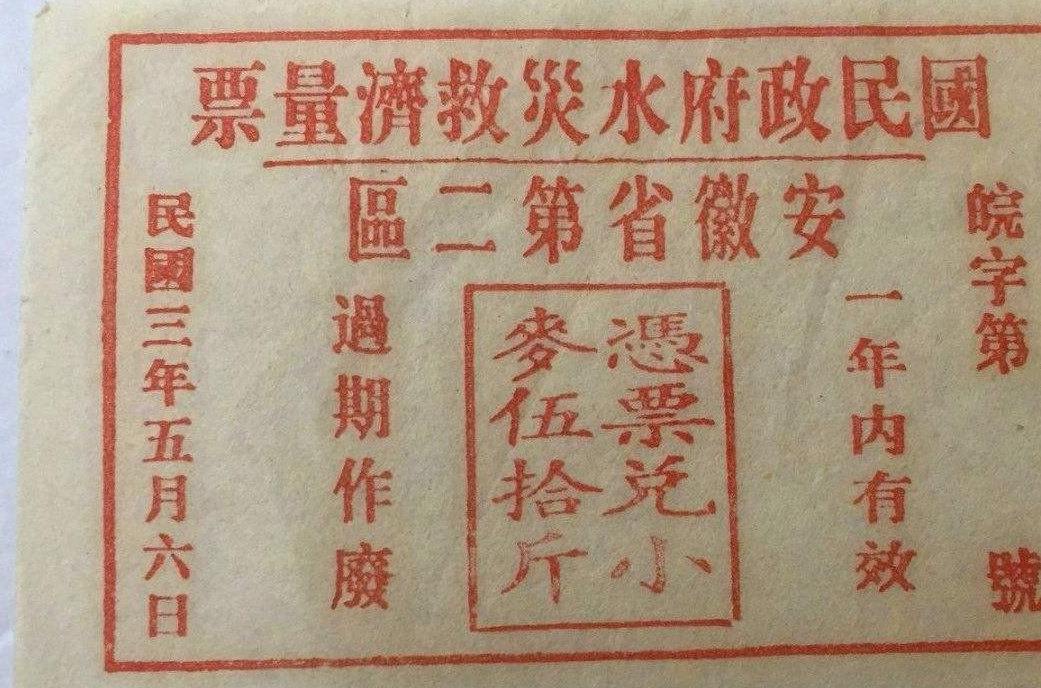 國民政府水災救濟量票
安徽省第二區
皖字第 號
一年內有效
憑票兑小
麥伍拾斤
過期作廢
民國三年五月六日